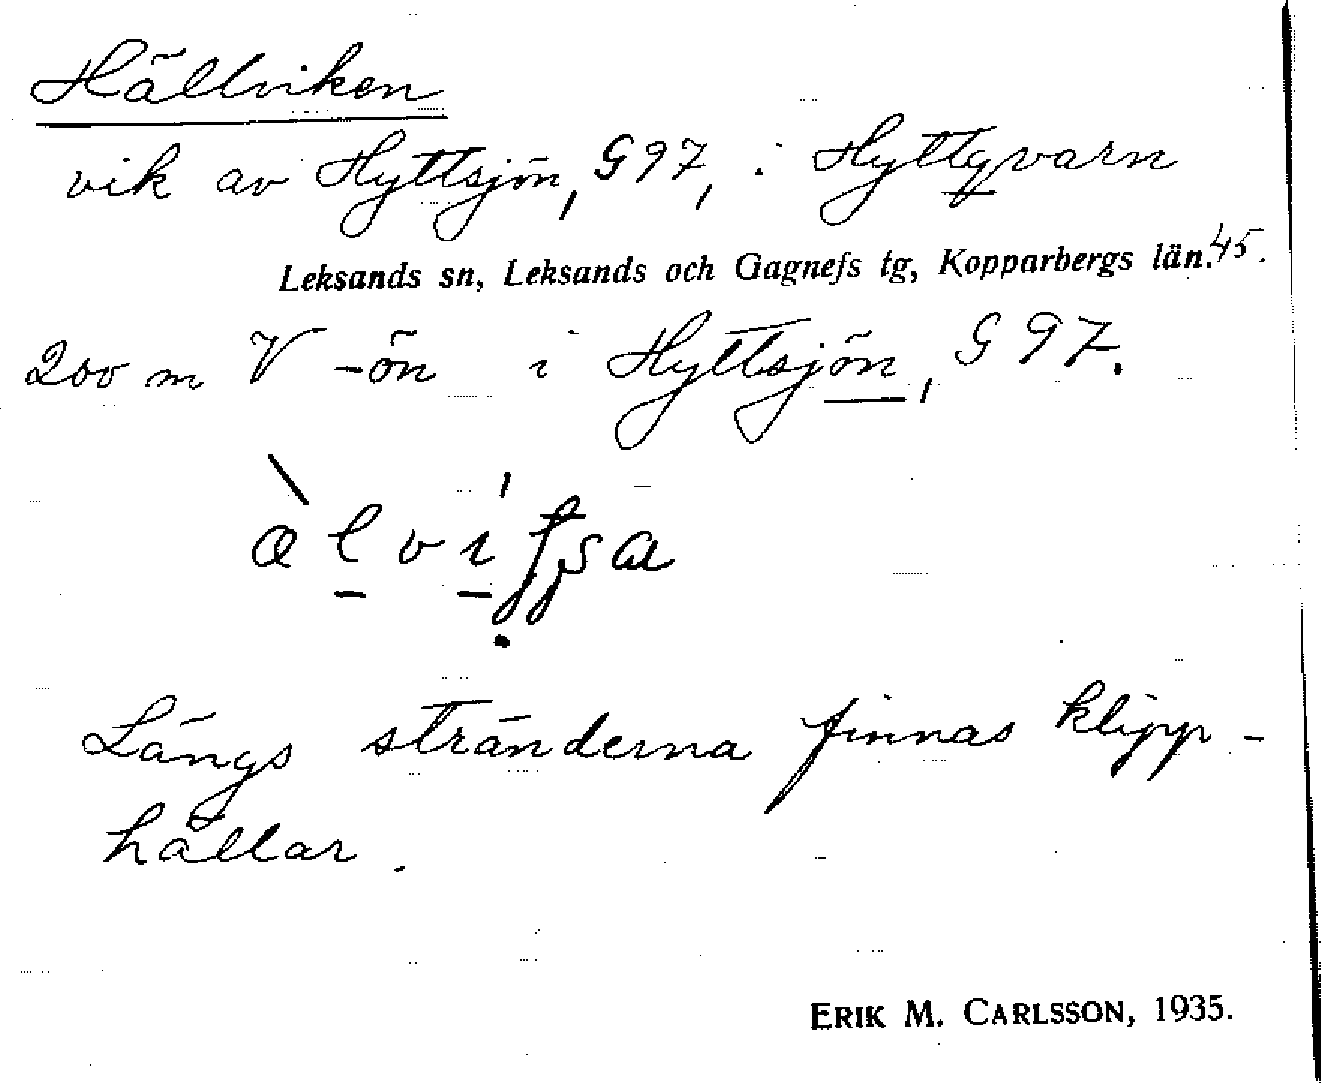 Hällviken
vik av Hyttsjön, G 97, i Hyttqvarn
Leksands sn, Leksands och Gagnefs tg, Kopparbergs län. 45.
200 m V -ön i Hyttsjön, G 97.
Längs stränderna finnas klipp-
hällar.
ERIK M. CARLSSON, 1935.